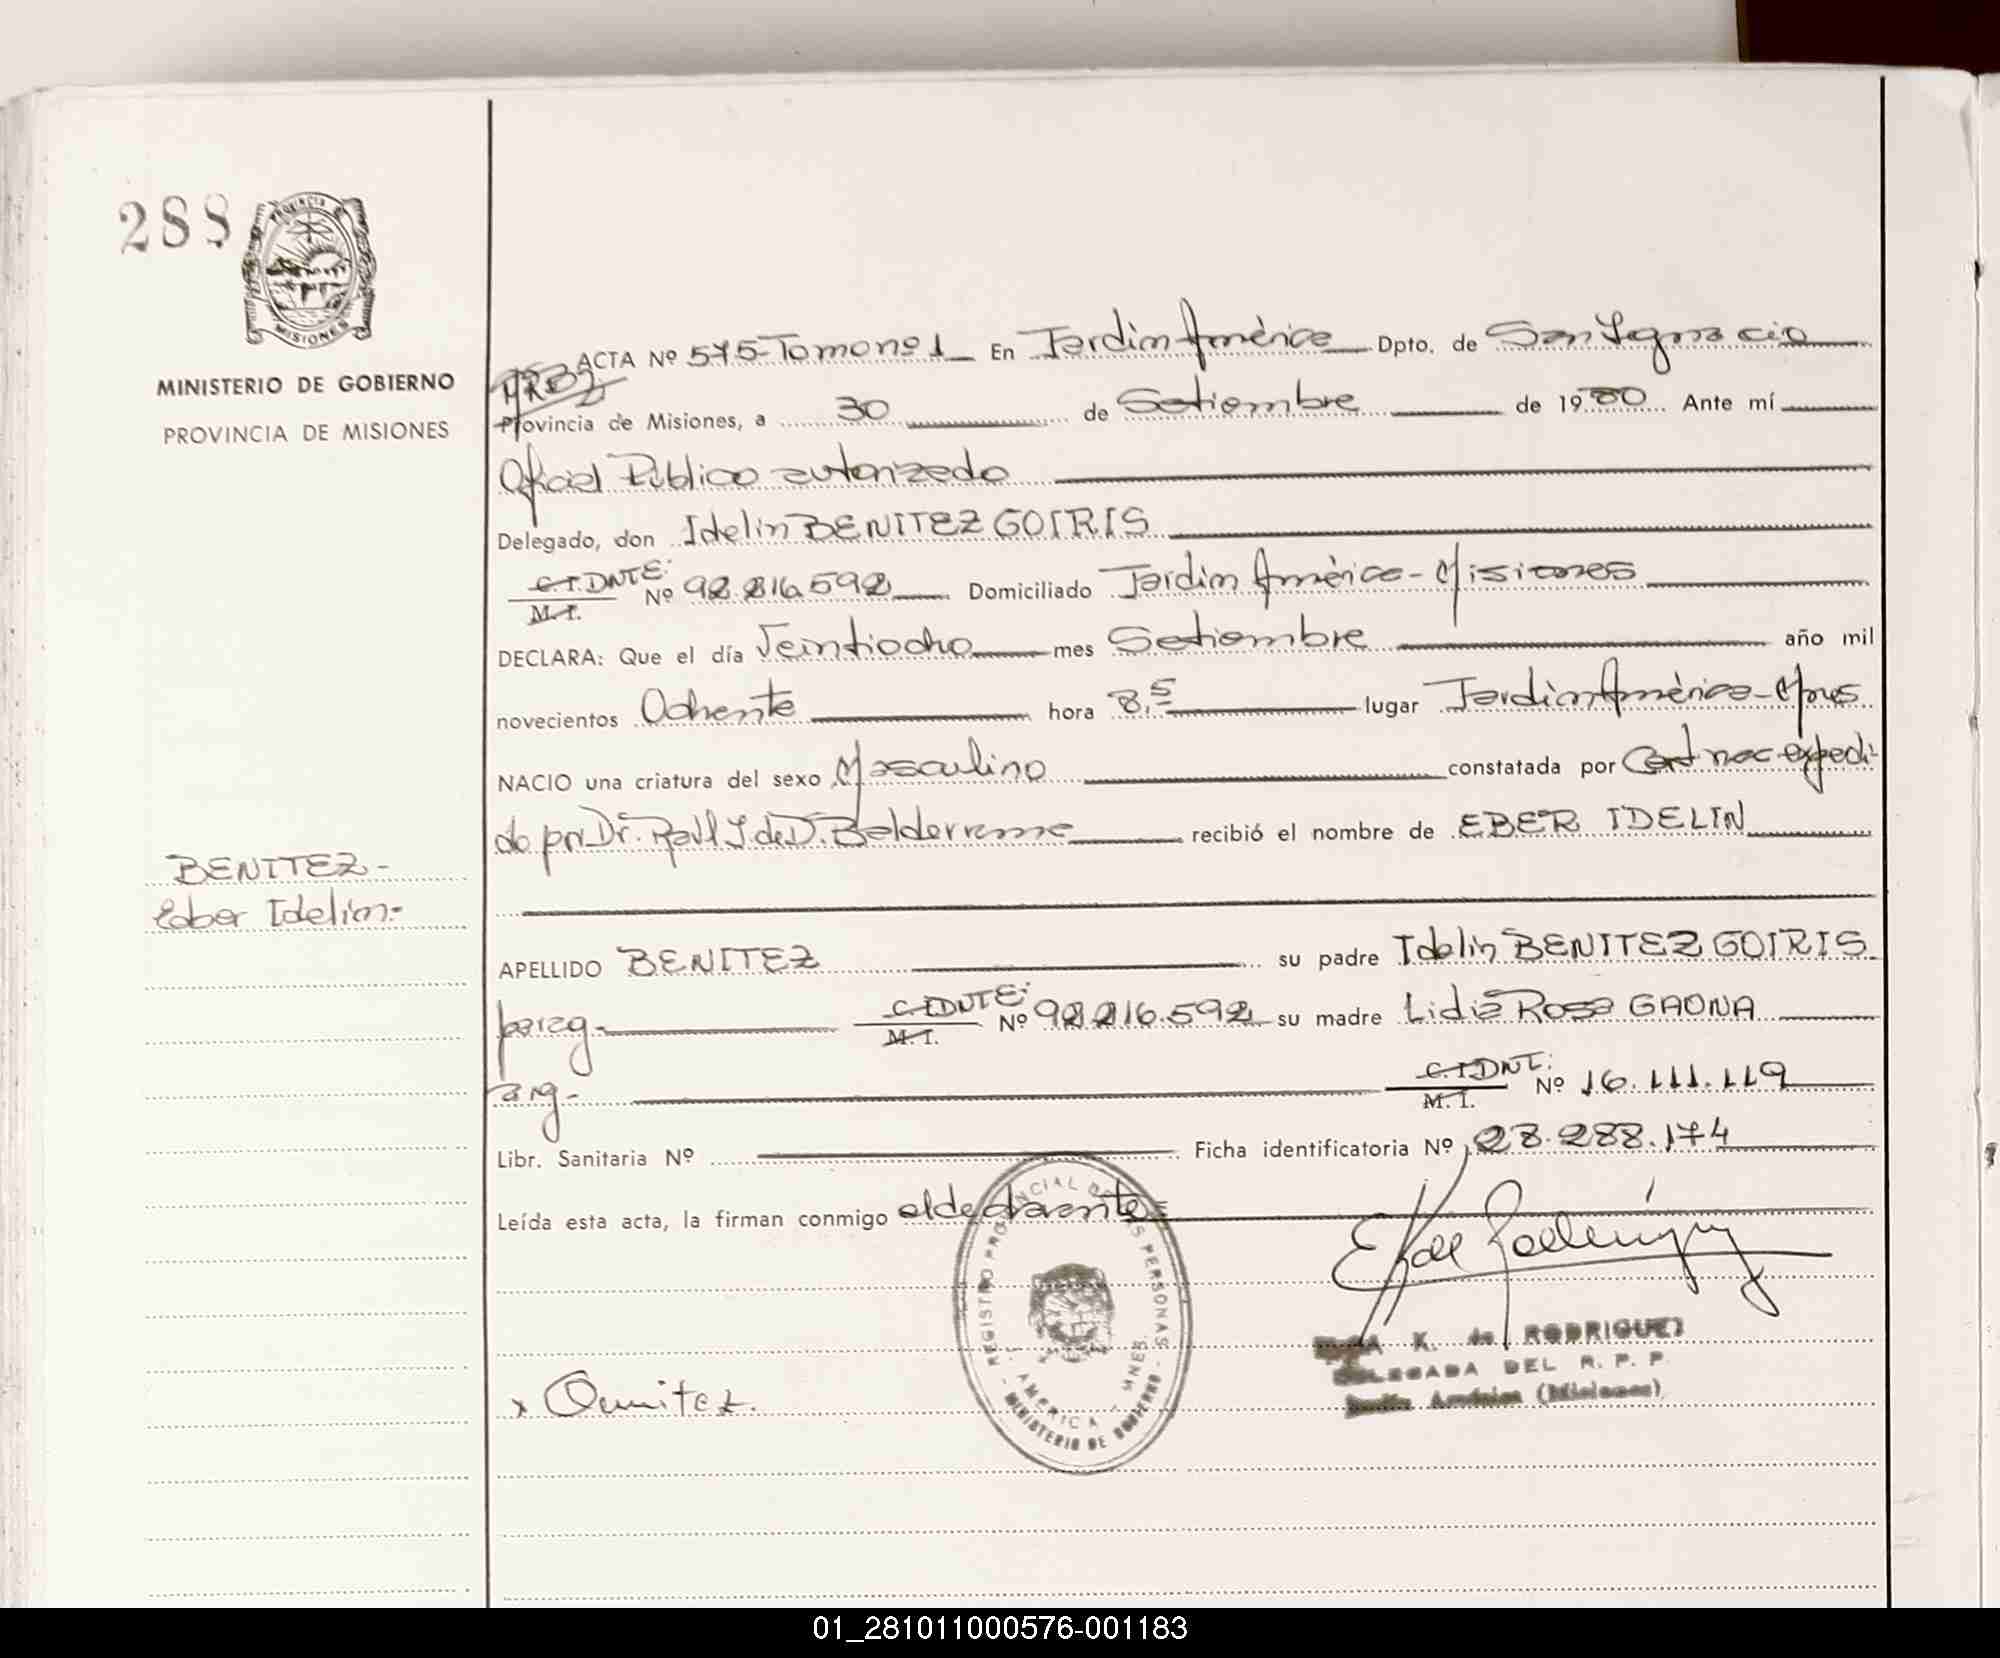 288
PROVINCIA DE
MISIONES
MINISTERIO DE GOBIERNO
PROVINCIA DE MISIONES
ACTA Nº 575-Tomo nº 1 En Jardín América Dpto. de San Ignacio
Provincia de Misiones, a 30 de Setiembre de 1980 Ante mí
Oficial Público autorizado
Delegado, don Idelin BENITEZ GOIRIS
C.I. DNTE: M.I. Nº 92.216.592 Domiciliado Jardín América-Misiones
DECLARA: Que el día Veintiocho mes Setiembre año mil
novecientos Ochenta hora 8,5 lugar Jardín América-Mnes
NACIO una criatura del sexo Masculino constatada por Cert nac expedi-
do por Dr. Raúl J. de D. Balderrama recibió el nombre de EBER IDELIN
BENITEZ-
Eber Idelin-
APELLIDO BENITEZ su padre Idelin BENITEZ GOIRIS
parag- C.I. DNTE: M.I. Nº 92.216.592 su madre Lidia Rosa GAONA
arg- C.I. DNI: M.I. Nº 16.111.119
Libr. Sanitaria Nº Ficha identificatoria Nº 28.288.174
Leída esta acta, la firman conmigo el declarante=
REGISTRO PROVINCIAL DE LAS PERSONAS
AMERICA - MNES
- MINISTERIO DE GOBIERNO -
K. de RODRIGUEZ
DELEGADA DEL R. P. P.
Jardín América (Misiones)
x
01_281011000576-001183